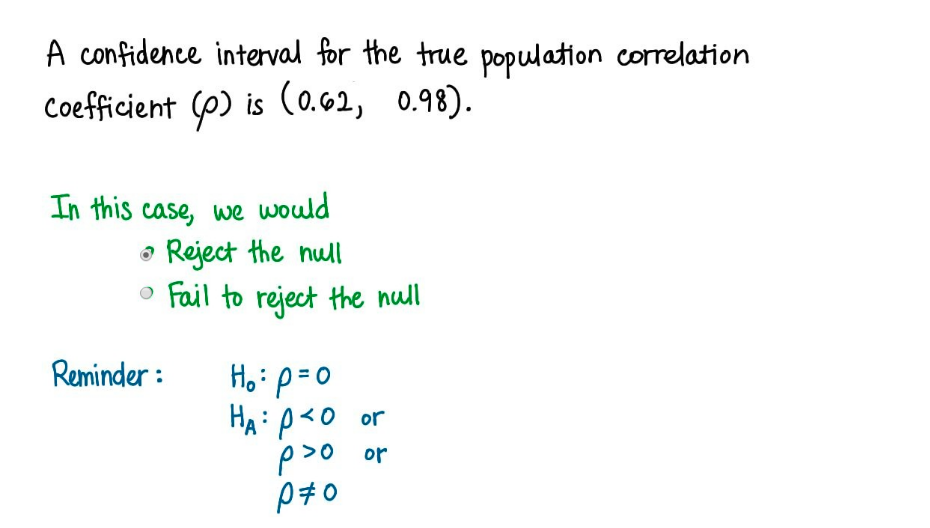 A confidence interval for the true population correlation
coefficient (ρ) is (0.62, 0.98).
In this case, we would
Reject the null
Fail to reject the null
Reminder: H₀: ρ=0
H_A: ρ<0 or
ρ>0 or
ρ≠0